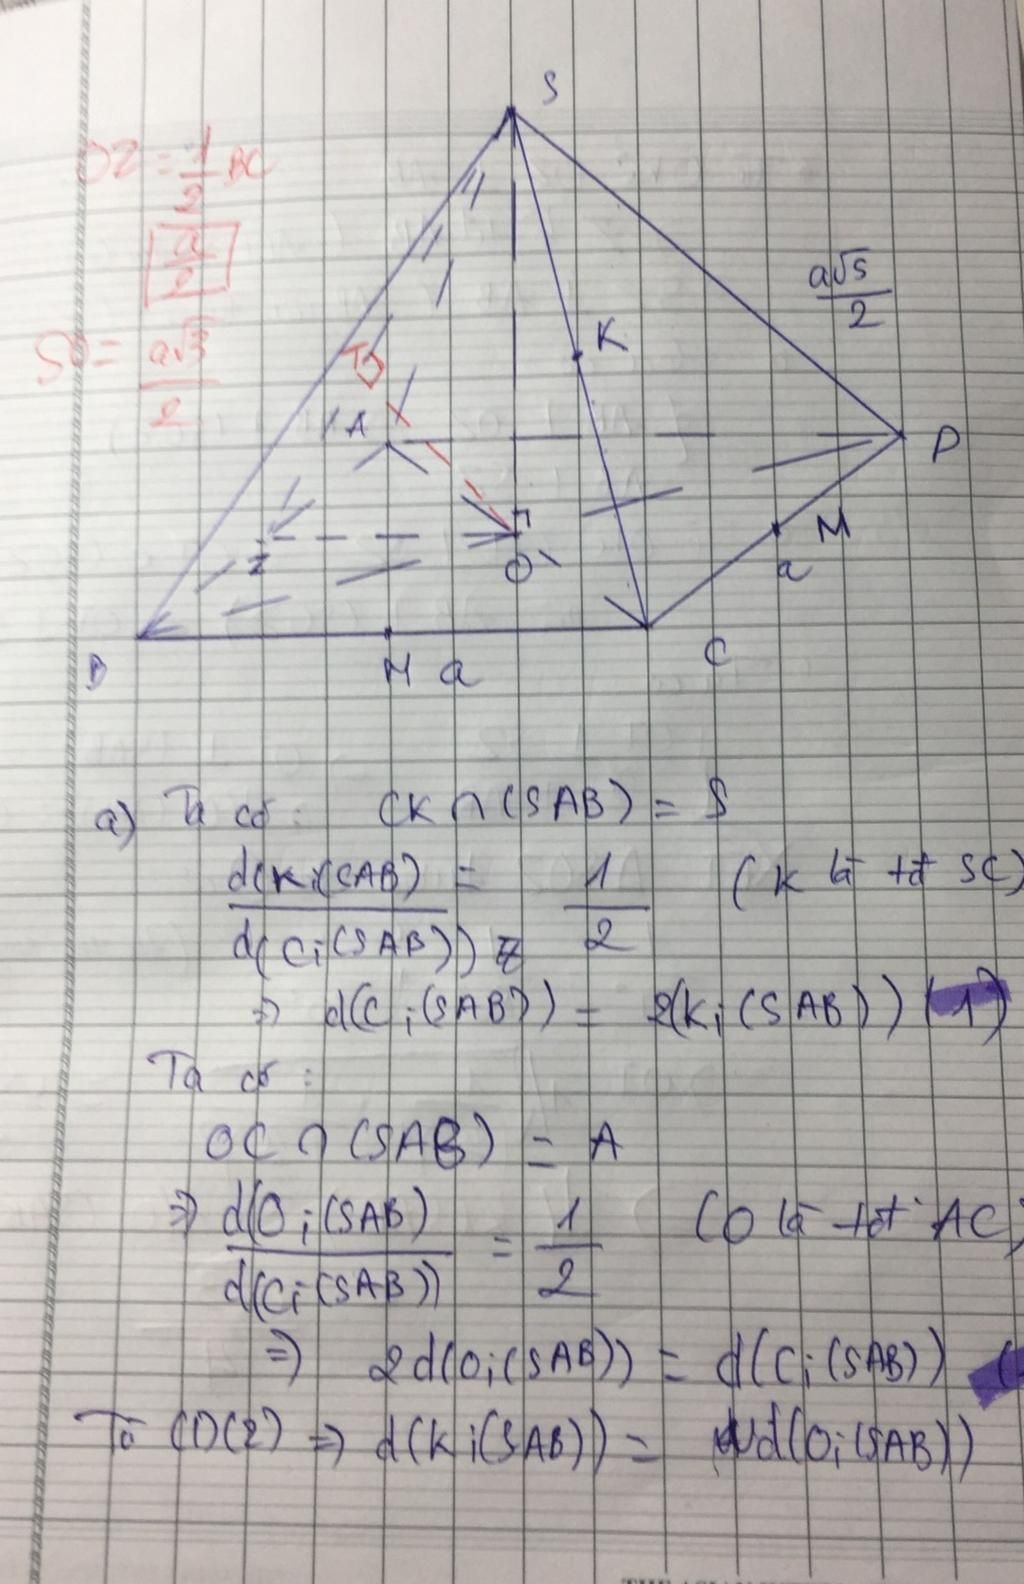 S
OZ = 1/2 BC
a/2
SO = a√3/2
a√5/2
K
A
D
M
a
Z
O
B
H a
C
a) Ta có: CK ∩ (SAB) = S
d(K;(SAB) / d(C;(SAB)) = 1/2 (K là tđ SC)
⇒ d(C;(SAB)) = 2(K;(SAB)) (1)
Ta có:
OC ∩ (SAB) = A
⇒ d(O;(SAB) / d(C;(SAB)) = 1/2 (O là tđ AC)
⇒ 2d(O;(SAB)) = d(C;(SAB))
Từ (1)(2) ⇒ d(K;(SAB)) = d(O;(SAB))